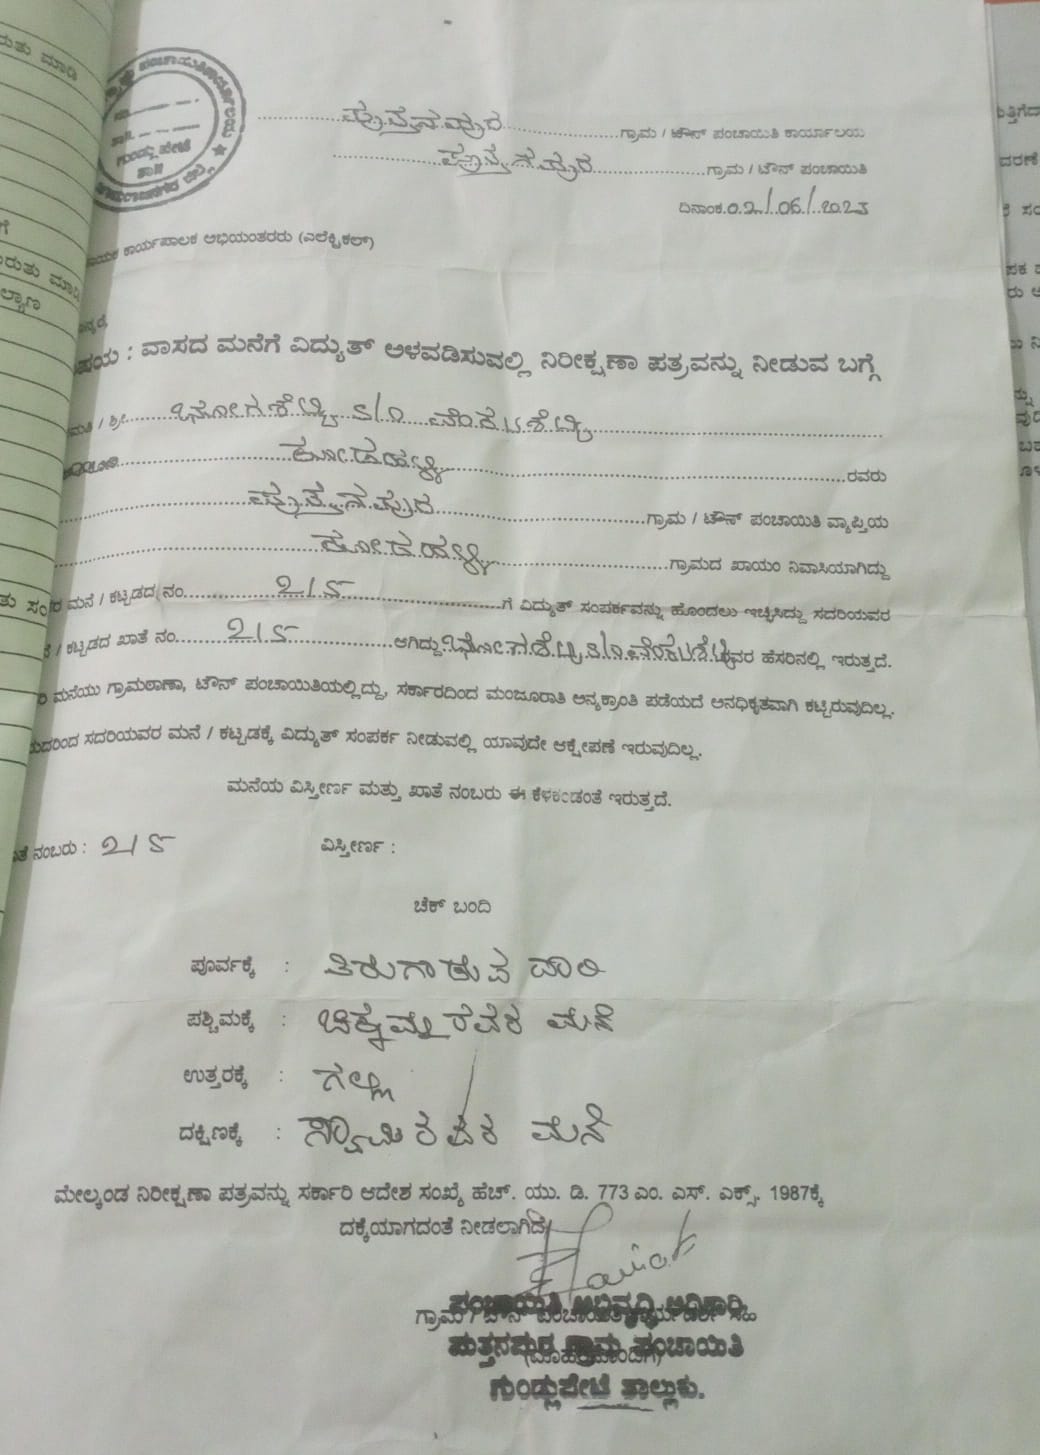 ಪುತ್ತನಪುರ ಗ್ರಾಮ / ಟೌನ್ ಪಂಚಾಯಿತಿ ಕಾರ್ಯಾಲಯ
ಪುತ್ತನಪುರ ಗ್ರಾಮ / ಟೌನ್ ಪಂಚಾಯಿತಿ
ಗುಂಡ್ಲುಪೇಟೆ
ದಿನಾಂಕ 02/06/2023
ಕಾರ್ಯಪಾಲಕ ಅಭಿಯಂತರರು (ಎಲೆಕ್ಟ್ರಿಕಲ್)
ವಾಸದ ಮನೆಗೆ ವಿದ್ಯುತ್ ಅಳವಡಿಸುವಲ್ಲಿ ನಿರೀಕ್ಷಣಾ ಪತ್ರವನ್ನು ನೀಡುವ ಬಗ್ಗೆ
/ ಶ್ರೀ S/O ವೆಂಕಟಶೆಟ್ಟಿ
ಕೋಡಹಳ್ಳಿ ರವರು
ಪುತ್ತನಪುರ ಗ್ರಾಮ / ಟೌನ್ ಪಂಚಾಯಿತಿ ವ್ಯಾಪ್ತಿಯ
ಕೋಡಹಳ್ಳಿ ಗ್ರಾಮದ ಖಾಯಂ ನಿವಾಸಿಯಾಗಿದ್ದು
ಮನೆ / ಕಟ್ಟಡದ ನಂ 215 ಗೆ ವಿದ್ಯುತ್ ಸಂಪರ್ಕವನ್ನು ಹೊಂದಲು ಇಚ್ಛಿಸಿದ್ದು ಸದರಿಯವರ
/ ಕಟ್ಟಡದ ಖಾತೆ ನಂ 215 ಆಗಿದ್ದು S/O ರವರ ಹೆಸರಿನಲ್ಲಿ ಇರುತ್ತದೆ.
ಮನೆಯು ಗ್ರಾಮಠಾಣಾ, ಟೌನ್ ಪಂಚಾಯಿತಿಯಲ್ಲಿದ್ದು, ಸರ್ಕಾರದಿಂದ ಮಂಜೂರಾತಿ ಅನ್ಯಕ್ರಾಂತಿ ಪಡೆಯದೆ ಅನಧಿಕೃತವಾಗಿ ಕಟ್ಟಿರುವುದಿಲ್ಲ.
ಸದರಿಯವರ ಮನೆ / ಕಟ್ಟಡಕ್ಕೆ ವಿದ್ಯುತ್ ಸಂಪರ್ಕ ನೀಡುವಲ್ಲಿ ಯಾವುದೇ ಆಕ್ಷೇಪಣೆ ಇರುವುದಿಲ್ಲ.
ಮನೆಯ ವಿಸ್ತೀರ್ಣ ಮತ್ತು ಖಾತೆ ನಂಬರು ಈ ಕೆಳಕಂಡಂತೆ ಇರುತ್ತದೆ.
ನಂಬರು : 215 ವಿಸ್ತೀರ್ಣ :
ಚೆಕ್ ಬಂದಿ
ಪೂರ್ವಕ್ಕೆ : ತಿರುಗಾಡುವ ದಾರಿ
ಪಶ್ಚಿಮಕ್ಕೆ : ಚಿಕ್ಕಮ್ಮ ರವರ ಮನೆ
ಉತ್ತರಕ್ಕೆ : ಗಲ್ಲಿ
ದಕ್ಷಿಣಕ್ಕೆ : ಸ್ವಾಮಿ ರವರ ಮನೆ
ಮೇಲ್ಕಂಡ ನಿರೀಕ್ಷಣಾ ಪತ್ರವನ್ನು ಸರ್ಕಾರಿ ಆದೇಶ ಸಂಖ್ಯೆ ಹೆಚ್. ಯು. ಡಿ. 773 ಎಂ. ಎಸ್. ಎಕ್ಸ್. 1987ಕ್ಕೆ
ದಕ್ಕೆಯಾಗದಂತೆ ನೀಡಲಾಗಿದೆ
ಪಂಚಾಯಿತಿ ಅಭಿವೃದ್ಧಿ ಅಧಿಕಾರಿ
ಗ್ರಾಮ / ಟೌನ್ ಸಹಿ
ಪುತ್ತನಪುರ ಗ್ರಾಮ ಪಂಚಾಯಿತಿ
ಗುಂಡ್ಲುಪೇಟೆ ತಾಲ್ಲೂಕು.